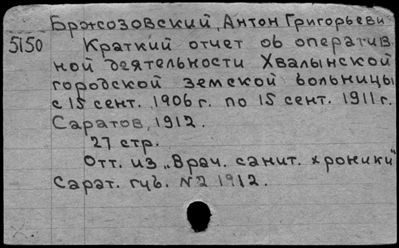 Бржозовский, Антон Григорьеви
5150 Краткий отчет об оператив
ной деятельности Хвалынской
городской земской больницы
с 15 сент. 1906 г. по 15 сент. 1911 г.
Саратов, 1912.
27 стр.
Отт. из „Врач. санит. хроники"
Сарат. губ. №2 1912.